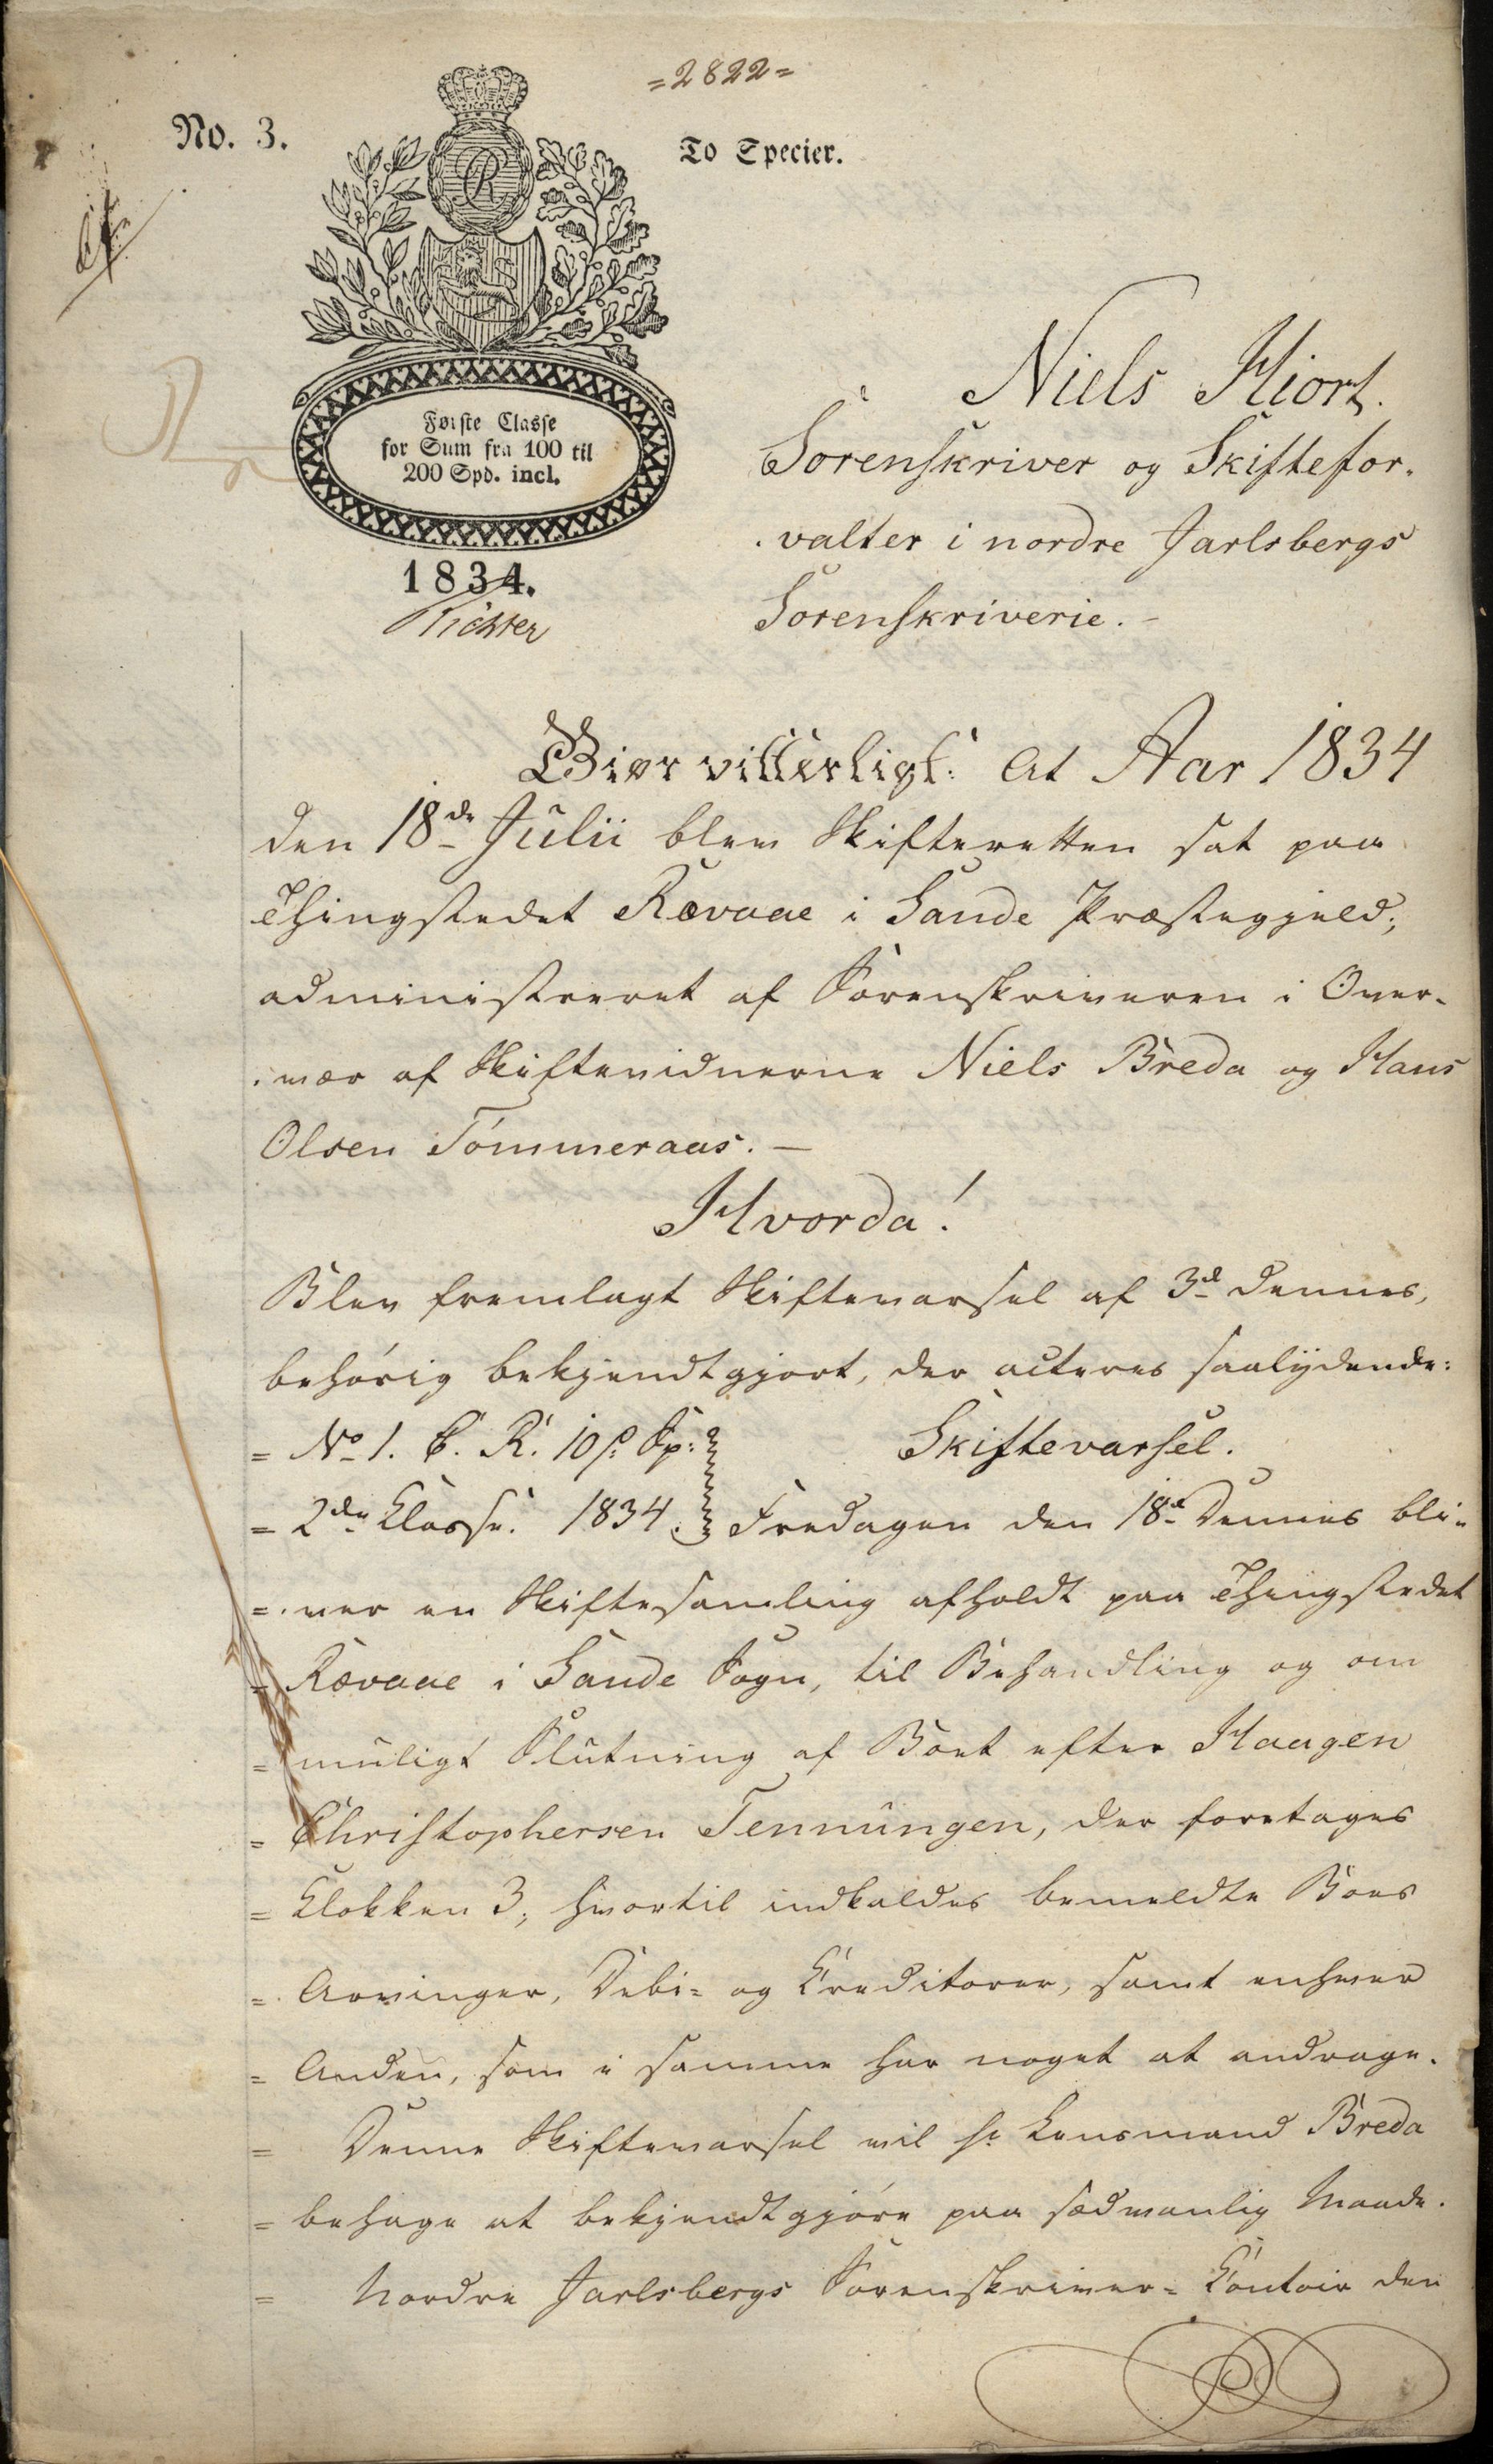 =2822=
No. 3.
To Specier.
R
Første Classe
for Sum fra 100 til
200 Spd. incl.
1834.
Richter
Niels Hiort.
Sorenskriver og Skiftefor-
-valter i nordre Jarlsbergs
Sorenskriverie.-
Giør vitterligt: At Aar 1834
den 18de Julii blev Skifteretten sat paa
Thingstedet Rævaae i Sande Præstegjeld;
administreret af Sorenskriveren i Over-
-vær af Skiftevidnerne Niels Breda og Hans
Olsen Tömmeraas. —
Hvorda!
Blev fremlagt Skiftevarsel af 3d dennes,
behörig bekjendtgjort, der acteres saalydende:
= No 1. C. R. 10 s: Sp:
Skiftevarsel.
= 2den Classe. 1834.
Fredagen den 18d Dennes bli-
=-ver en Skiftesamling afholdt paa Thingstedet
= Rævaae i Sande Sogn, til Behandling og om
= muligt Slutning af Boet efter Haagen
= Christophersen Tennüngen, der foretages
= Klokken 3; hvortil indkaldes bemeldte Boes
= Arvinger, Debi= og Creditorer, samt enhver
= Anden, som i samme har noget at andrage.
= Denne Skiftevarsel vil Hr Lensmand Breda
= behage at bekjendtgjöre paa sædvanlig Maade.
= Nordre Jarlsbergs Sorenskriver=Contoir den